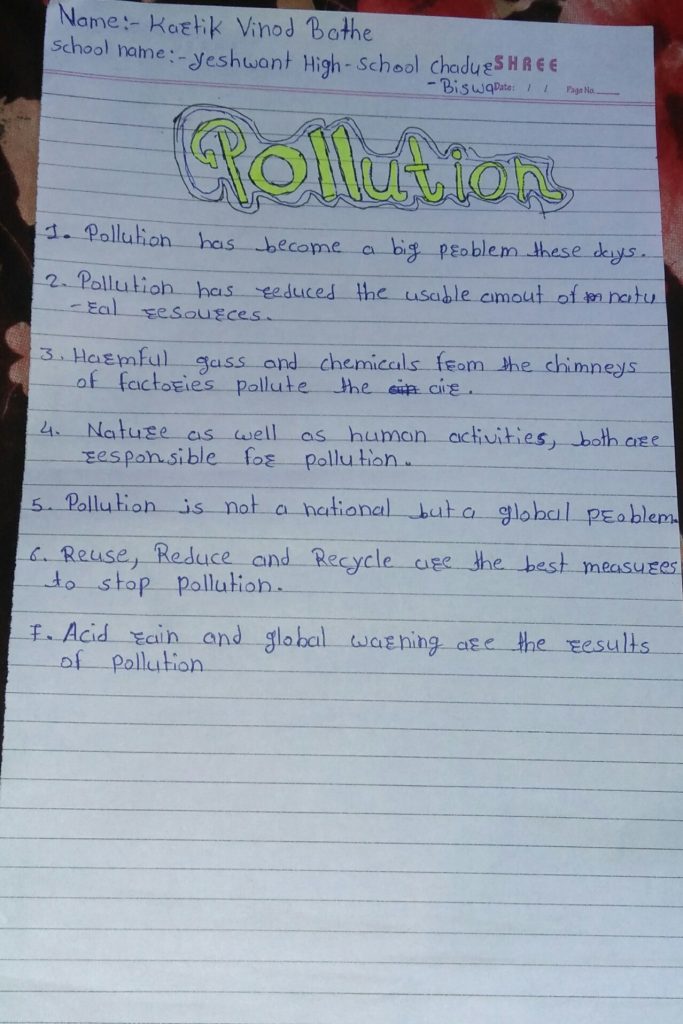 Name:- Kartik Vinod Bothe
School name:- Yeshwant High-School Chadur
SHREE
-Biswa
Date: / / Page No.
Pollution
1. Pollution has become a big problem these days.
2. Pollution has reduced the usable amout of natu
-ral resources.
3. Harmful gass and chemicals from the chimneys
of factories pollute the air.
4. Nature as well as human activities, both are
responsible for pollution.
5. Pollution is not a national but a global problem.
6. Reuse, Reduce and Recycle are the best measures
to stop pollution.
7. Acid rain and global warning are the results
of pollution